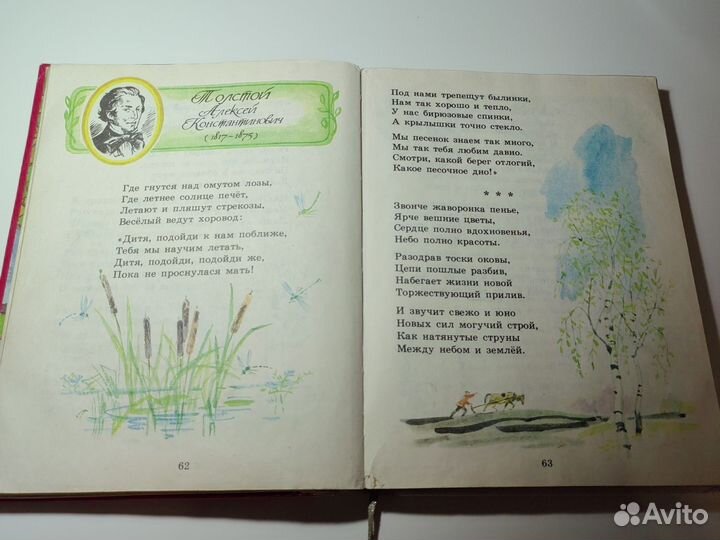 Толстой
Алексей
Константинович
(1817–1875)
Где гнутся над омутом лозы,
Где летнее солнце печёт,
Летают и пляшут стрекозы,
Весёлый ведут хоровод:
«Дитя, подойди к нам поближе,
Тебя мы научим летать,
Дитя, подойди, подойди же,
Пока не проснулася мать!
62
Под нами трепещут былинки,
Нам так хорошо и тепло,
У нас бирюзовые спинки,
А крылышки точно стекло.
Мы песенок знаем так много,
Мы так тебя любим давно.
Смотри, какой берег отлогий,
Какое песочное дно!»
* * *
Звонче жаворонка пенье,
Ярче вешние цветы,
Сердце полно вдохновенья,
Небо полно красоты.
Разодрав тоски оковы,
Цепи пошлые разбив,
Набегает жизни новой
Торжествующий прилив.
И звучит свежо и юно
Новых сил могучий строй,
Как натянутые струны
Между небом и землёй.
63
Avito